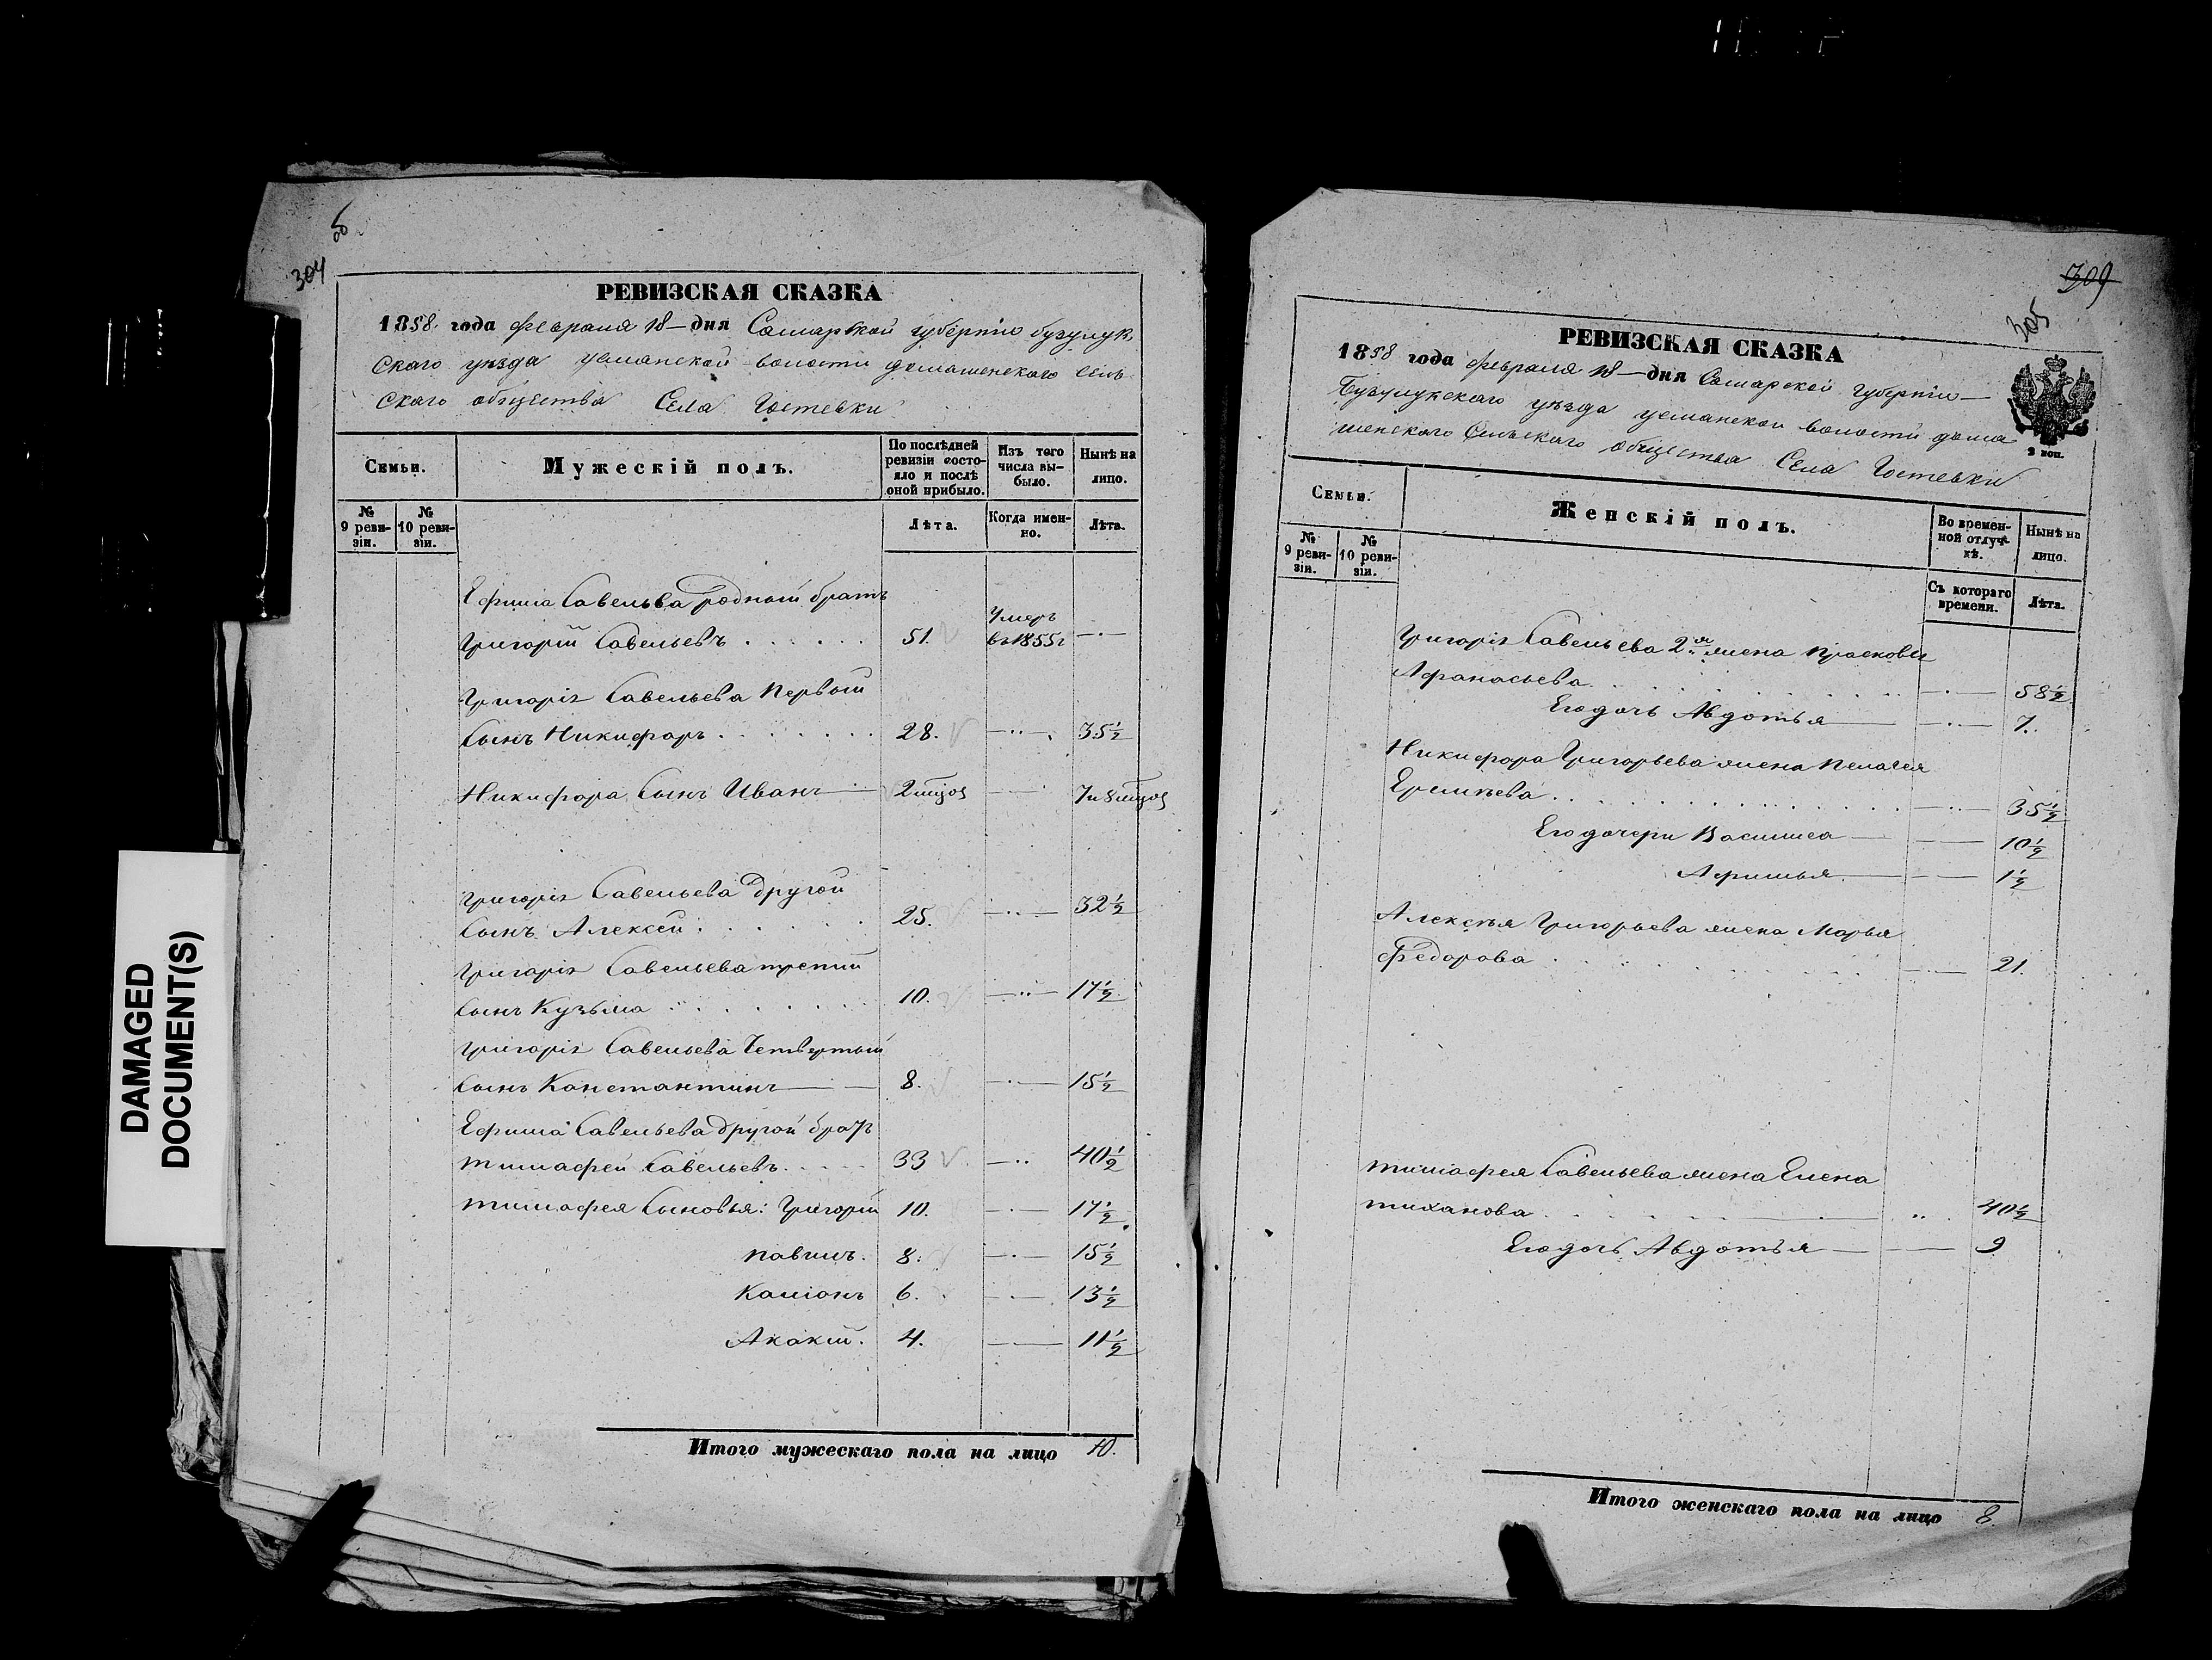 DAMAGED
DOCUMENT(S)
304
РЕВИЗСКАЯ СКАЗКА
1858 года февраля 18 — дня Самарской губернiи бузулук
скаго уѣзда усманской волости домашенскаго сель
скаго общества Села Гостевки
Семьи.
Мужескій полъ.
По послѣдней ревизіи состояло и послѣ оной прибыло.
Изъ того числа выбыло.
Нынѣ на лицо.
№ 9 ревизіи.
№ 10 ревизіи.
Лѣта.
Когда именно.
Лѣта.
Ефима Савельва родный братъ
Григорій Савельевъ 51. Умеръ въ 1855 г
Григорія Савельева первый
сынъ Никифоръ 28. 35½
Никифора сынъ Иванъ 2 мцов 7 и 8 мцов
Григорія Савельева другой
сынъ Алексей 25. 32½
Григорія Савельева третій
сынъ Кузьма 10. 17½
Григорія Савельева Четвертый
сынъ Константинъ 8. 15½
Ефима Савельева другой братъ
тимафей Савельевъ 33 40½
тимафея сыновья: Григорій 10. 17½
8. 15½
6. 13½
Акакій. 4. 11½
Итого мужескаго пола на лицо 10.
309
305
РЕВИЗСКАЯ СКАЗКА
1858 года февраля 18 — дня Самарской Губернiи
Бузулукскаго уѣзда усманской волости дома
шенскаго Сельскаго общества Села Гостевки
2 коп.
Семьи.
Женскій полъ.
Во временной отлучкѣ.
Нынѣ на лицо.
№ 9 ревизіи.
№ 10 ревизіи.
Съ котораго времени.
Лѣта.
Григорія Савельева 2я жена Прасковья
Афанасьева 58½
Его дочь Авдотья 7.
Никифора Григорьева жена Пелагея
35½
Его дочери Василиса 10½
Афимья 1½
Алексѣя Григорьева жена Марья
Федорова 21.
тимафея Савельева жена Елена
тиханова 40½
Его дочь Авдотья 9
Итого женскаго пола на лицо 8.